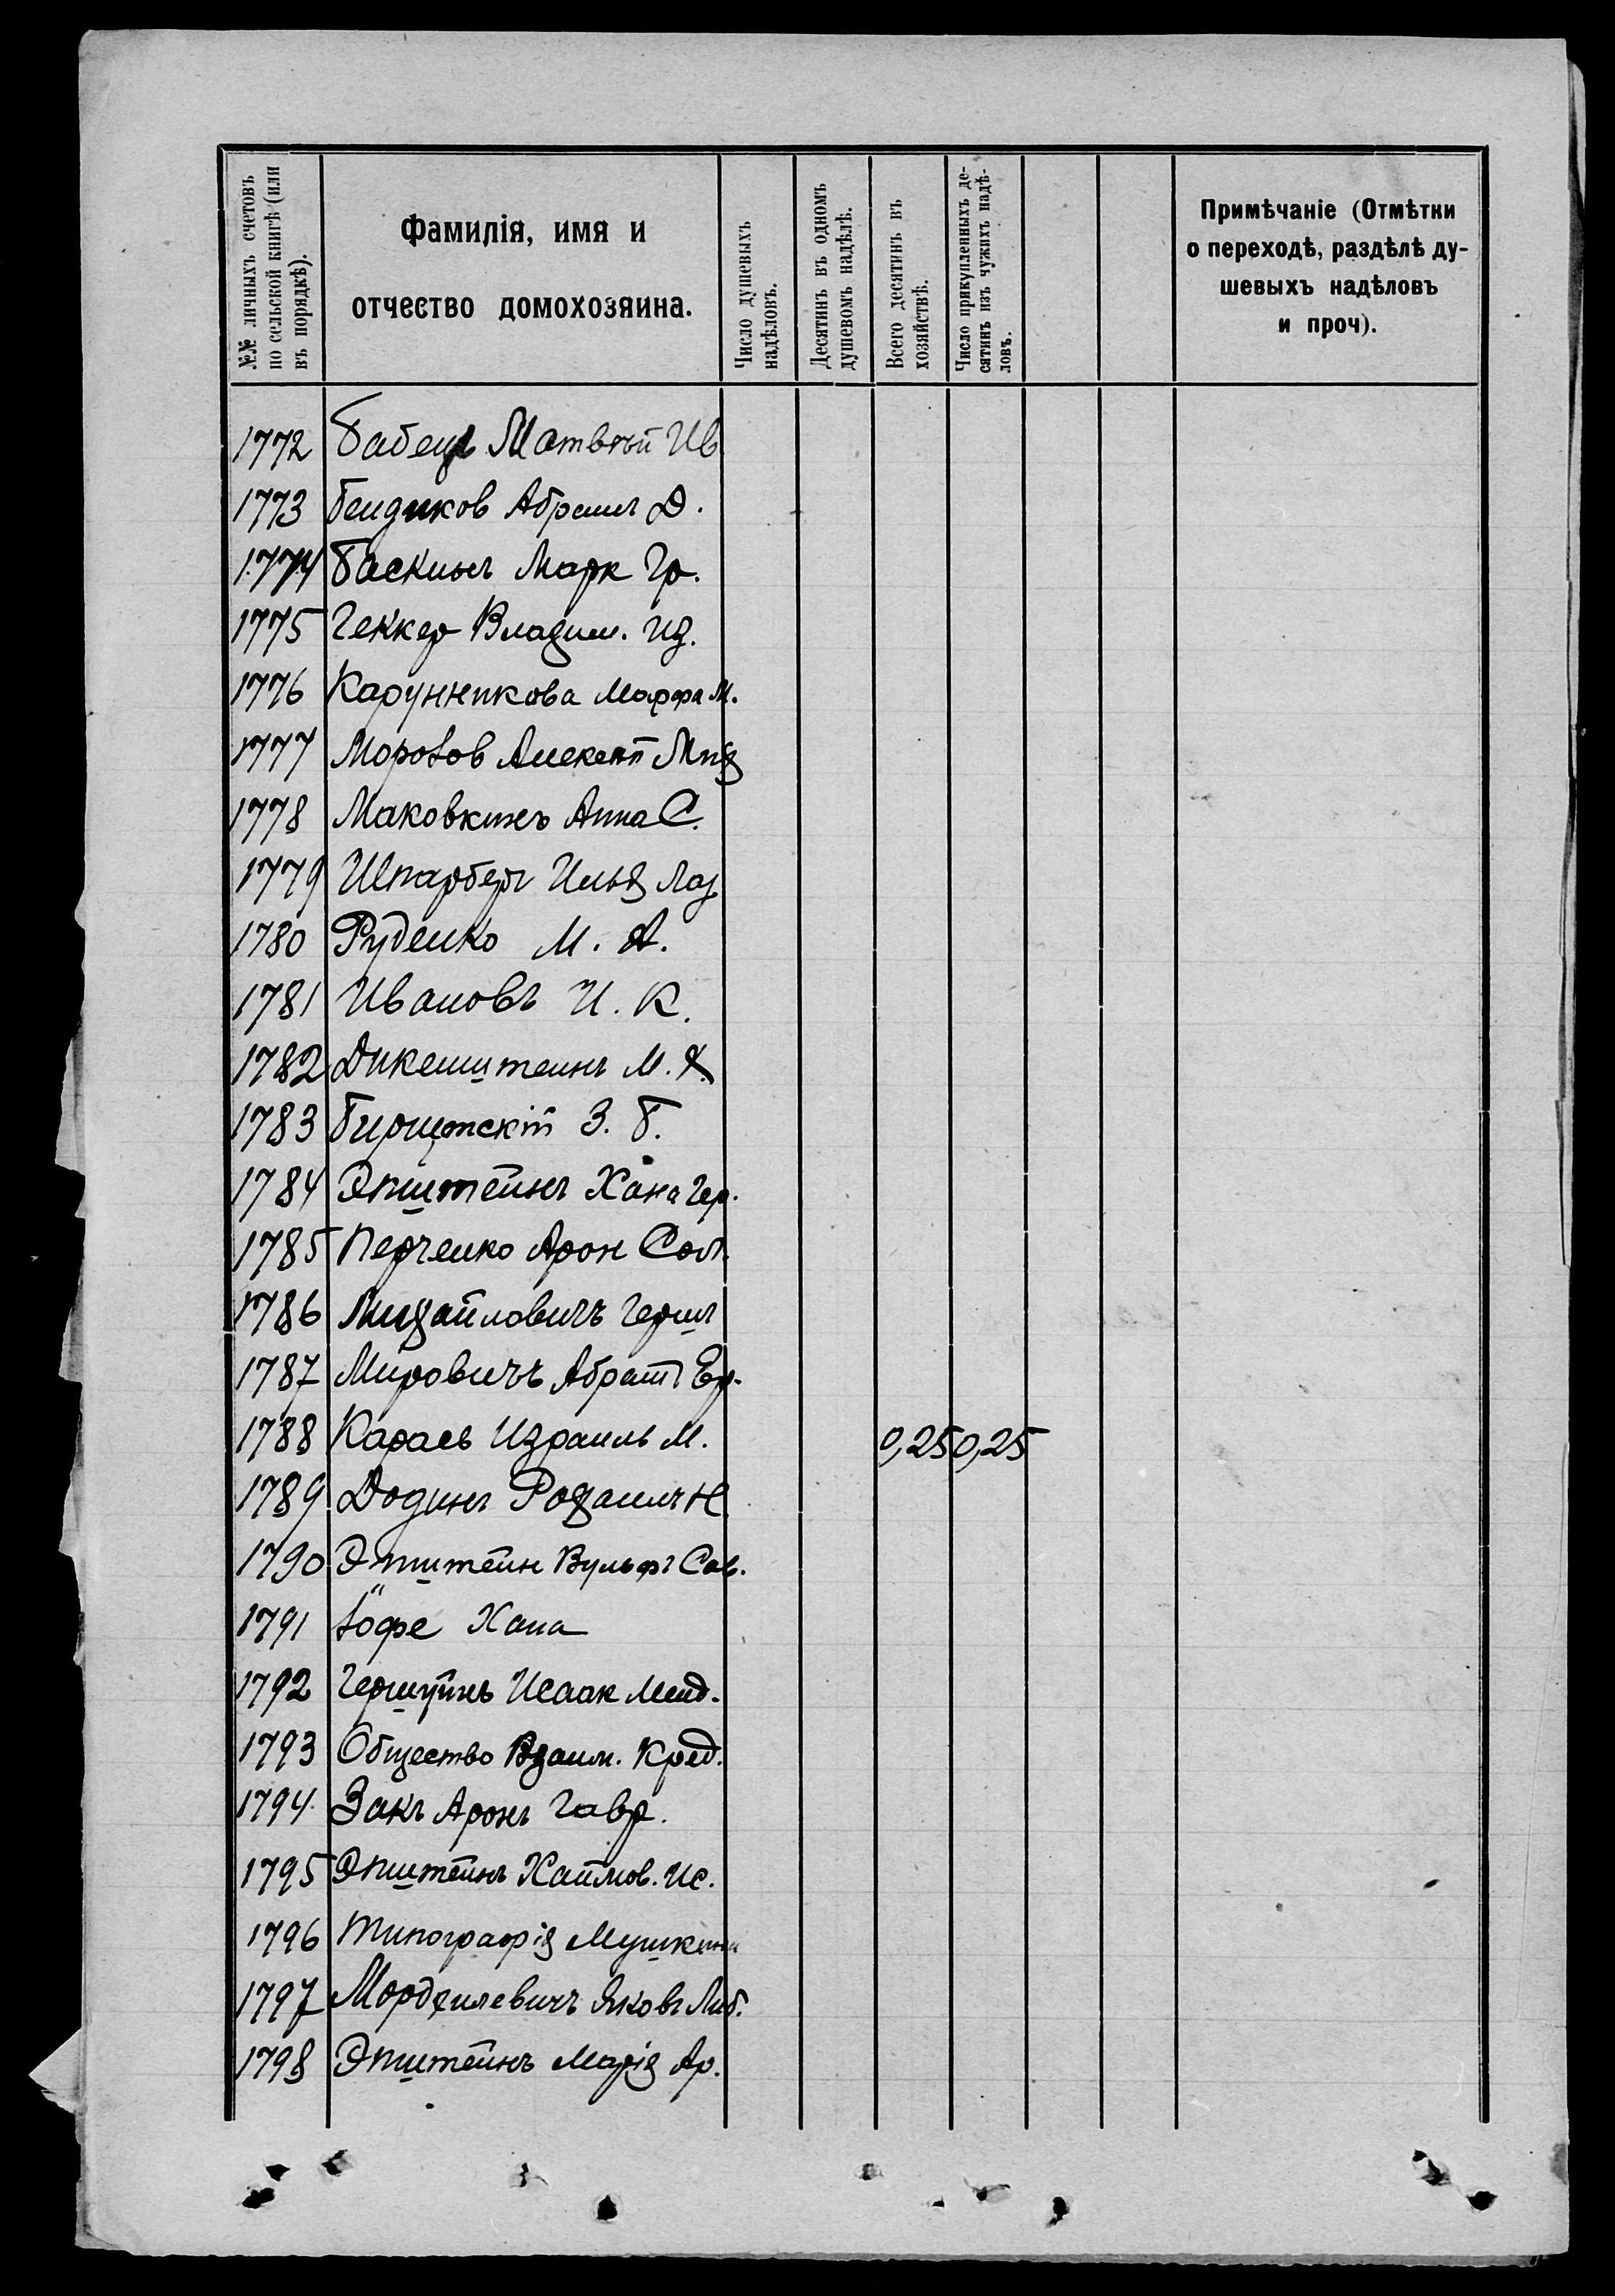 №№ личныхъ счетовъ
по сельской книгѣ (или
въ порядкѣ).
Фамилія, имя и
отчество домохозяина.
Число душевыхъ
надѣловъ.
Десятинъ въ одномъ
душевомъ надѣлѣ.
Всего десятинъ въ
хозяйствѣ.
Число прикупленныхъ де-
сятинъ изъ чужихъ надѣ-
ловъ.
Примѣчаніе (Отмѣтки
о переходѣ, раздѣлѣ ду-
шевыхъ надѣловъ
и проч).
1772 Бабецъ Матвѣй Ив
1773 Бендиков Абрамъ Д.
1774 Баскинъ Марк Гр.
1775 Геккер Владим.
1776 Карунникова Марфа М.
1777 Морозов Алексѣй Мих
1778 Маковкинъ Анна С.
1779 Шпарберг Илья Лаз
1780 Руденко М. А.
1781 Ивановъ И. К.
1782 Дикенштеинъ М. Х.
1783 З. Б.
1784 Эпштейнъ Хана Гер.
1785 Перченко Арон Сол.
1786 Михайловичъ Герш
1787 Мировичъ Абрам Ер.
1788 Караев Израиль М. 0,25 0,25
1789 Додинъ Рафаилъ Н
1790 Эпштейн Вульфъ Сав.
1791 Іофе Хана
1792 Исаак Менд.
1793 Общество Взаим. Кред.
1794 Закъ Аронъ Гавр.
1795 Эпштейнъ Хаймов. Ис.
1796 Типографія Мушкина
1797 Яковъ Либ.
1798 Эпштейнъ Марія Ар.